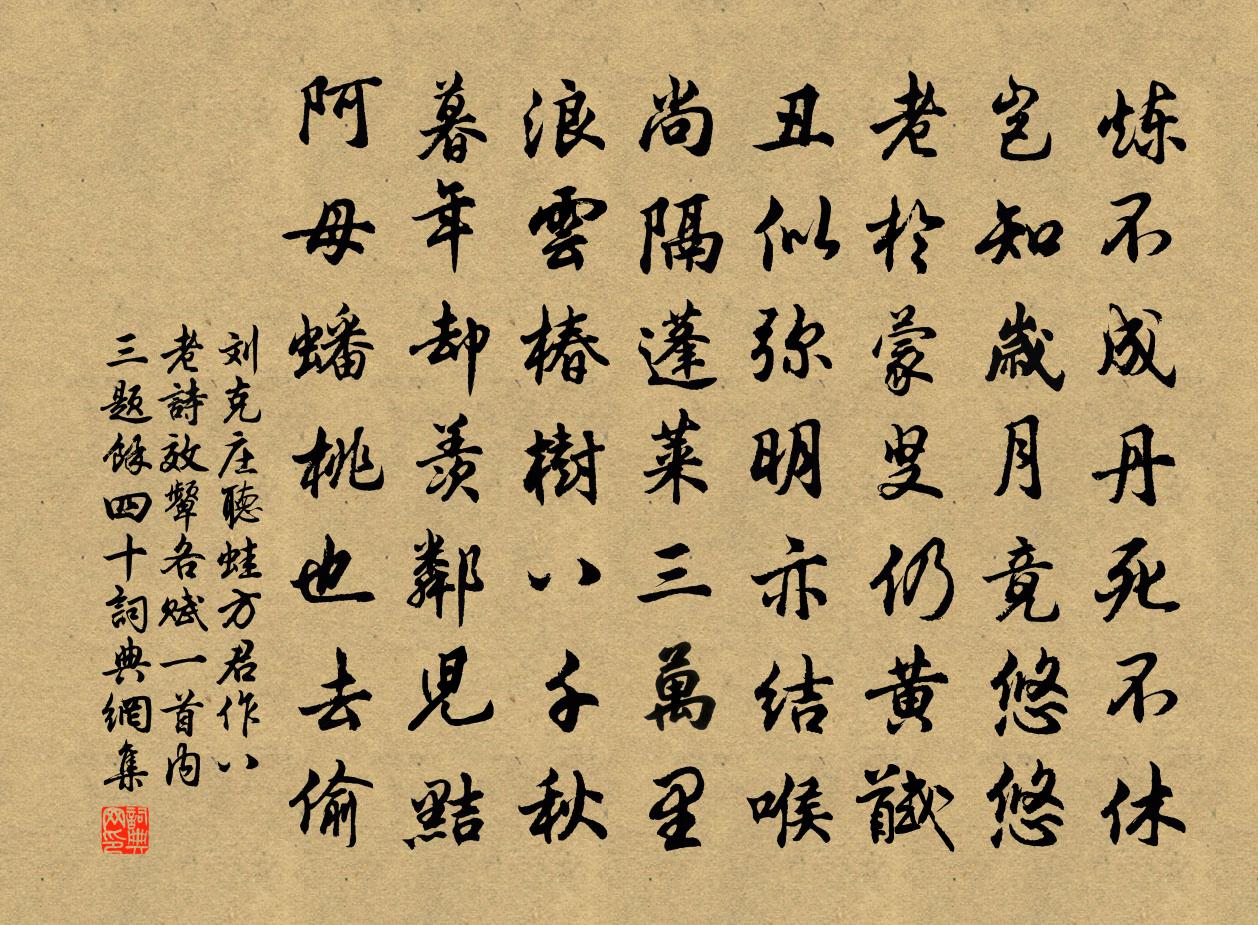 炼不成丹死不休
岂知歲月竟悠悠
老於蒙叟仍黄馘
丑似弥明亦结喉
尚隔蓬莱三萬里
浪雲椿樹八千秋
暮年却羡鄰児黠
阿母蟠桃也去偷
刘克庄聽蛙方君作八
老詩效顰各赋一首内
三题馀四十詞典網集
詞典网印